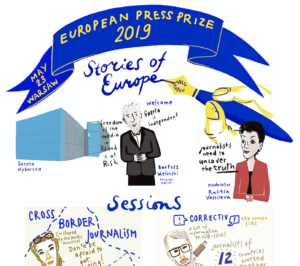 EUROPEAN PRESS PRIZE
2019
MAY
23
WARSAW
Stories of
Europe
welcome
Gazeta
is
independent
freedom
of the
media
in
Poland
is at
RISK
Gazeta
Wyborcza
Bartosz
Wieliński
journalists
need to
uncover
the truth
moderator
Ralitsa
Vassileva
Sessions
CROSS
BORDER
JOURNALISM
Don't be
afraid to
CORRECTIV
A lot of
information
journalists of
12
countries
worked